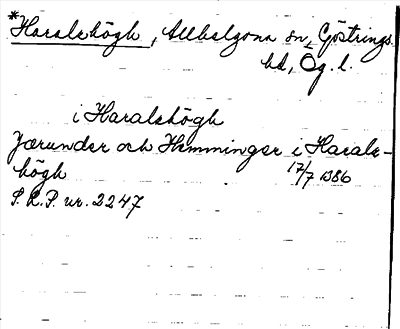 *Haralshögh, Allhelgona sn, Göstrings
hd, Ög. l.
i Haralshögh
Jærunder och Hemminger i Harals-
högh 17/7 1386
S. R. P. nr. 2247